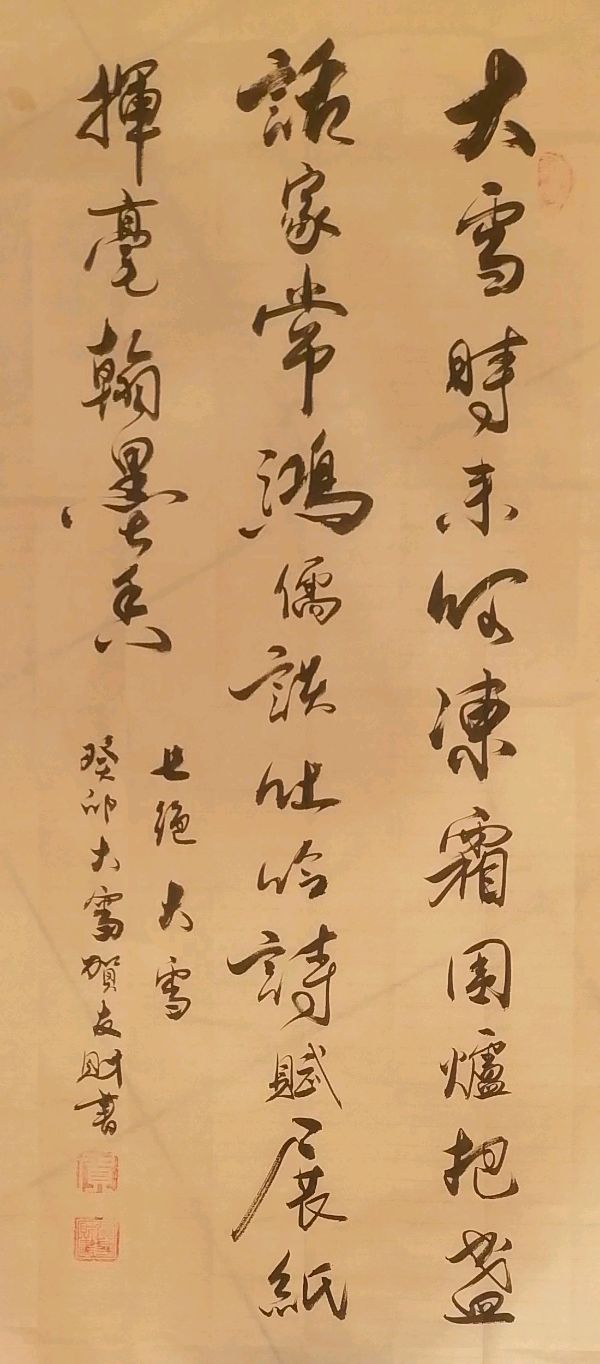 大雪時末呵凍霜围爐把盏
話家常鴻儒談吐吟詩賦展紙
揮毫翰墨香
七绝 大雪
癸卯大雪賀友財書